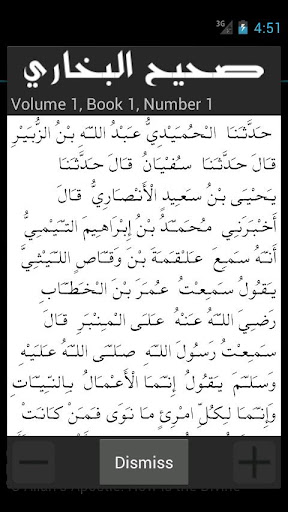 3G
4:51
صحيح البخاري
Volume 1, Book 1, Number 1
حَدَّثَنَا الْحُمَيْدِيُّ عَبْدُ اللَّهِ بْنُ الزُّبَيْرِ
قَالَ حَدَّثَنَا سُفْيَانُ قَالَ حَدَّثَنَا
يَحْيَى بْنُ سَعِيدٍ الْأَنْصَارِيُّ قَالَ
أَخْبَرَنِي مُحَمَّدُ بْنُ إِبْرَاهِيمَ التَّيْمِيُّ
أَنَّهُ سَمِعَ عَلْقَمَةَ بْنَ وَقَّاصٍ اللَّيْثِيَّ
يَقُولُ سَمِعْتُ عُمَرَ بْنَ الْخَطَّابِ
رَضِيَ اللَّهُ عَنْهُ عَلَى الْمِنْبَرِ قَالَ
سَمِعْتُ رَسُولَ اللَّهِ صَلَّى اللَّهُ عَلَيْهِ
وَسَلَّمَ يَقُولُ إِنَّمَا الْأَعْمَالُ بِالنِّيَّاتِ
وَإِنَّمَا لِكُلِّ امْرِئٍ مَا نَوَى فَمَنْ كَانَتْ
Dismiss